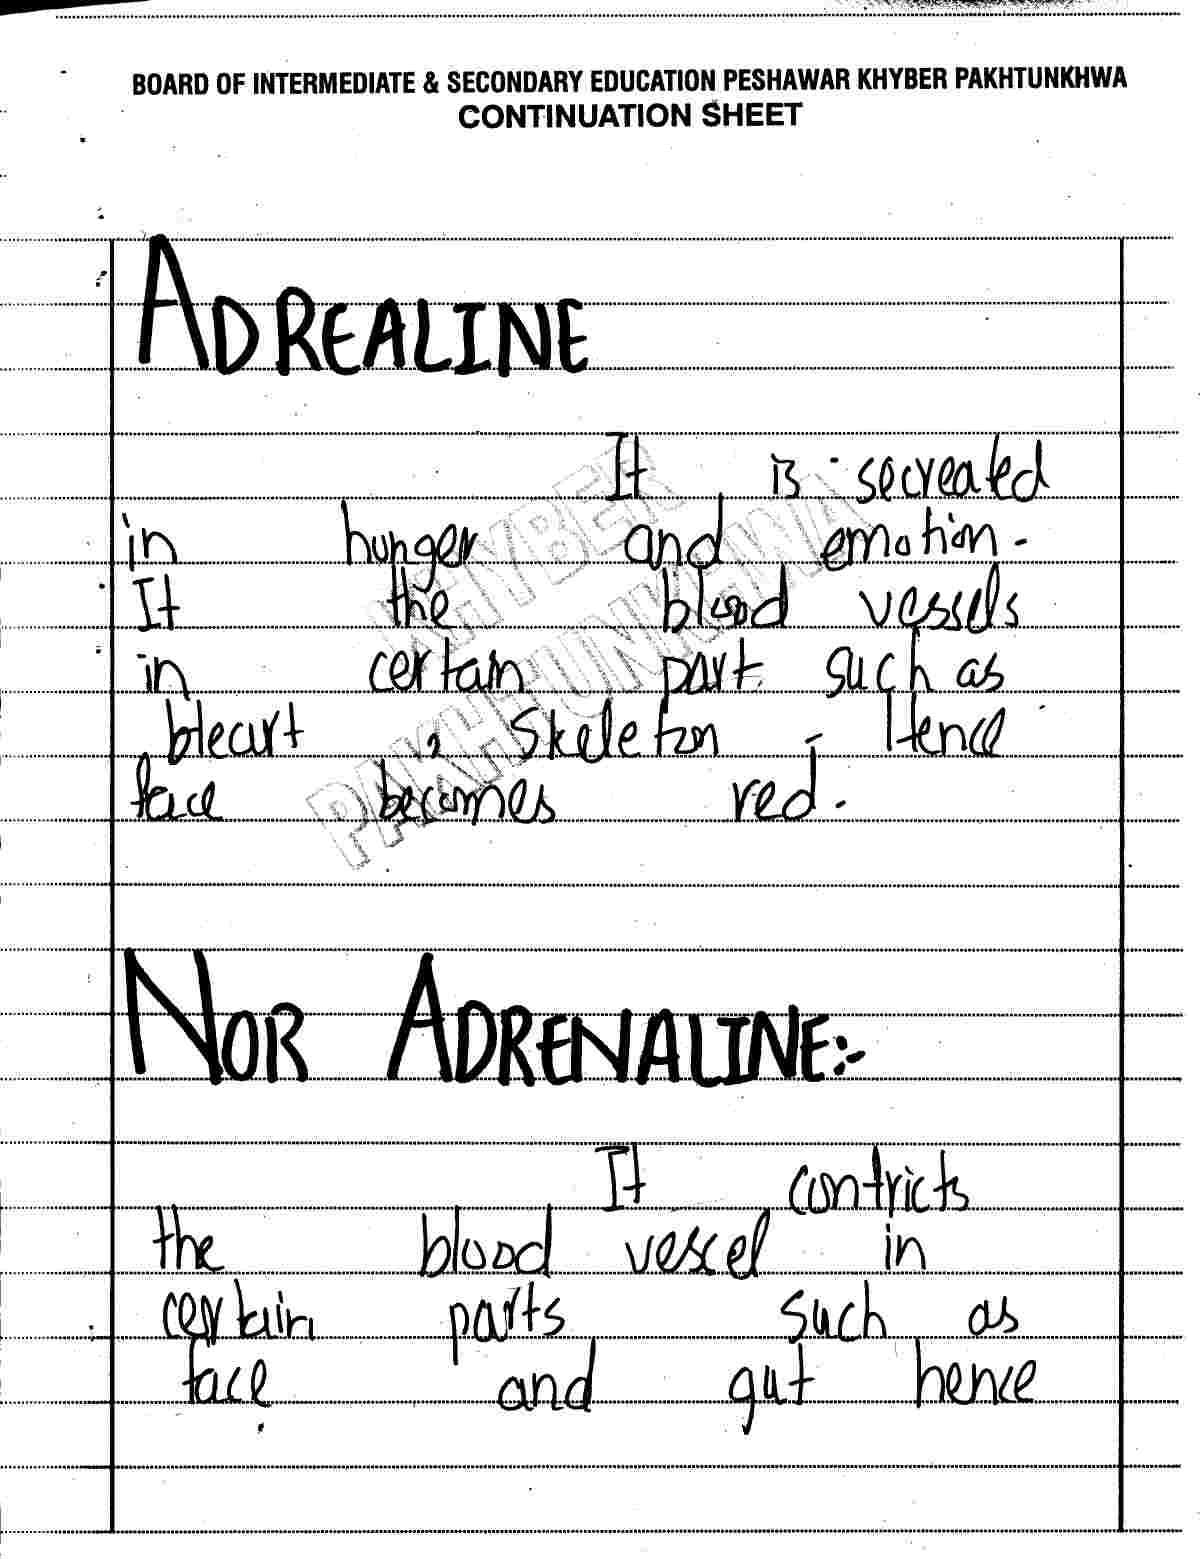 BOARD OF INTERMEDIATE & SECONDARY EDUCATION PESHAWAR KHYBER PAKHTUNKHWA
CONTINUATION SHEET
ADREALINE
It is secreated
in hunger and emotion.
It the blood vessels
in certain part such as
, skeleton - Hence
face becomes red.
KHYBER
PAKHTUNKHWA
NOR ADRENALINE:-
It contricts
the blood vessel in
certain parts such as
face and gut hence